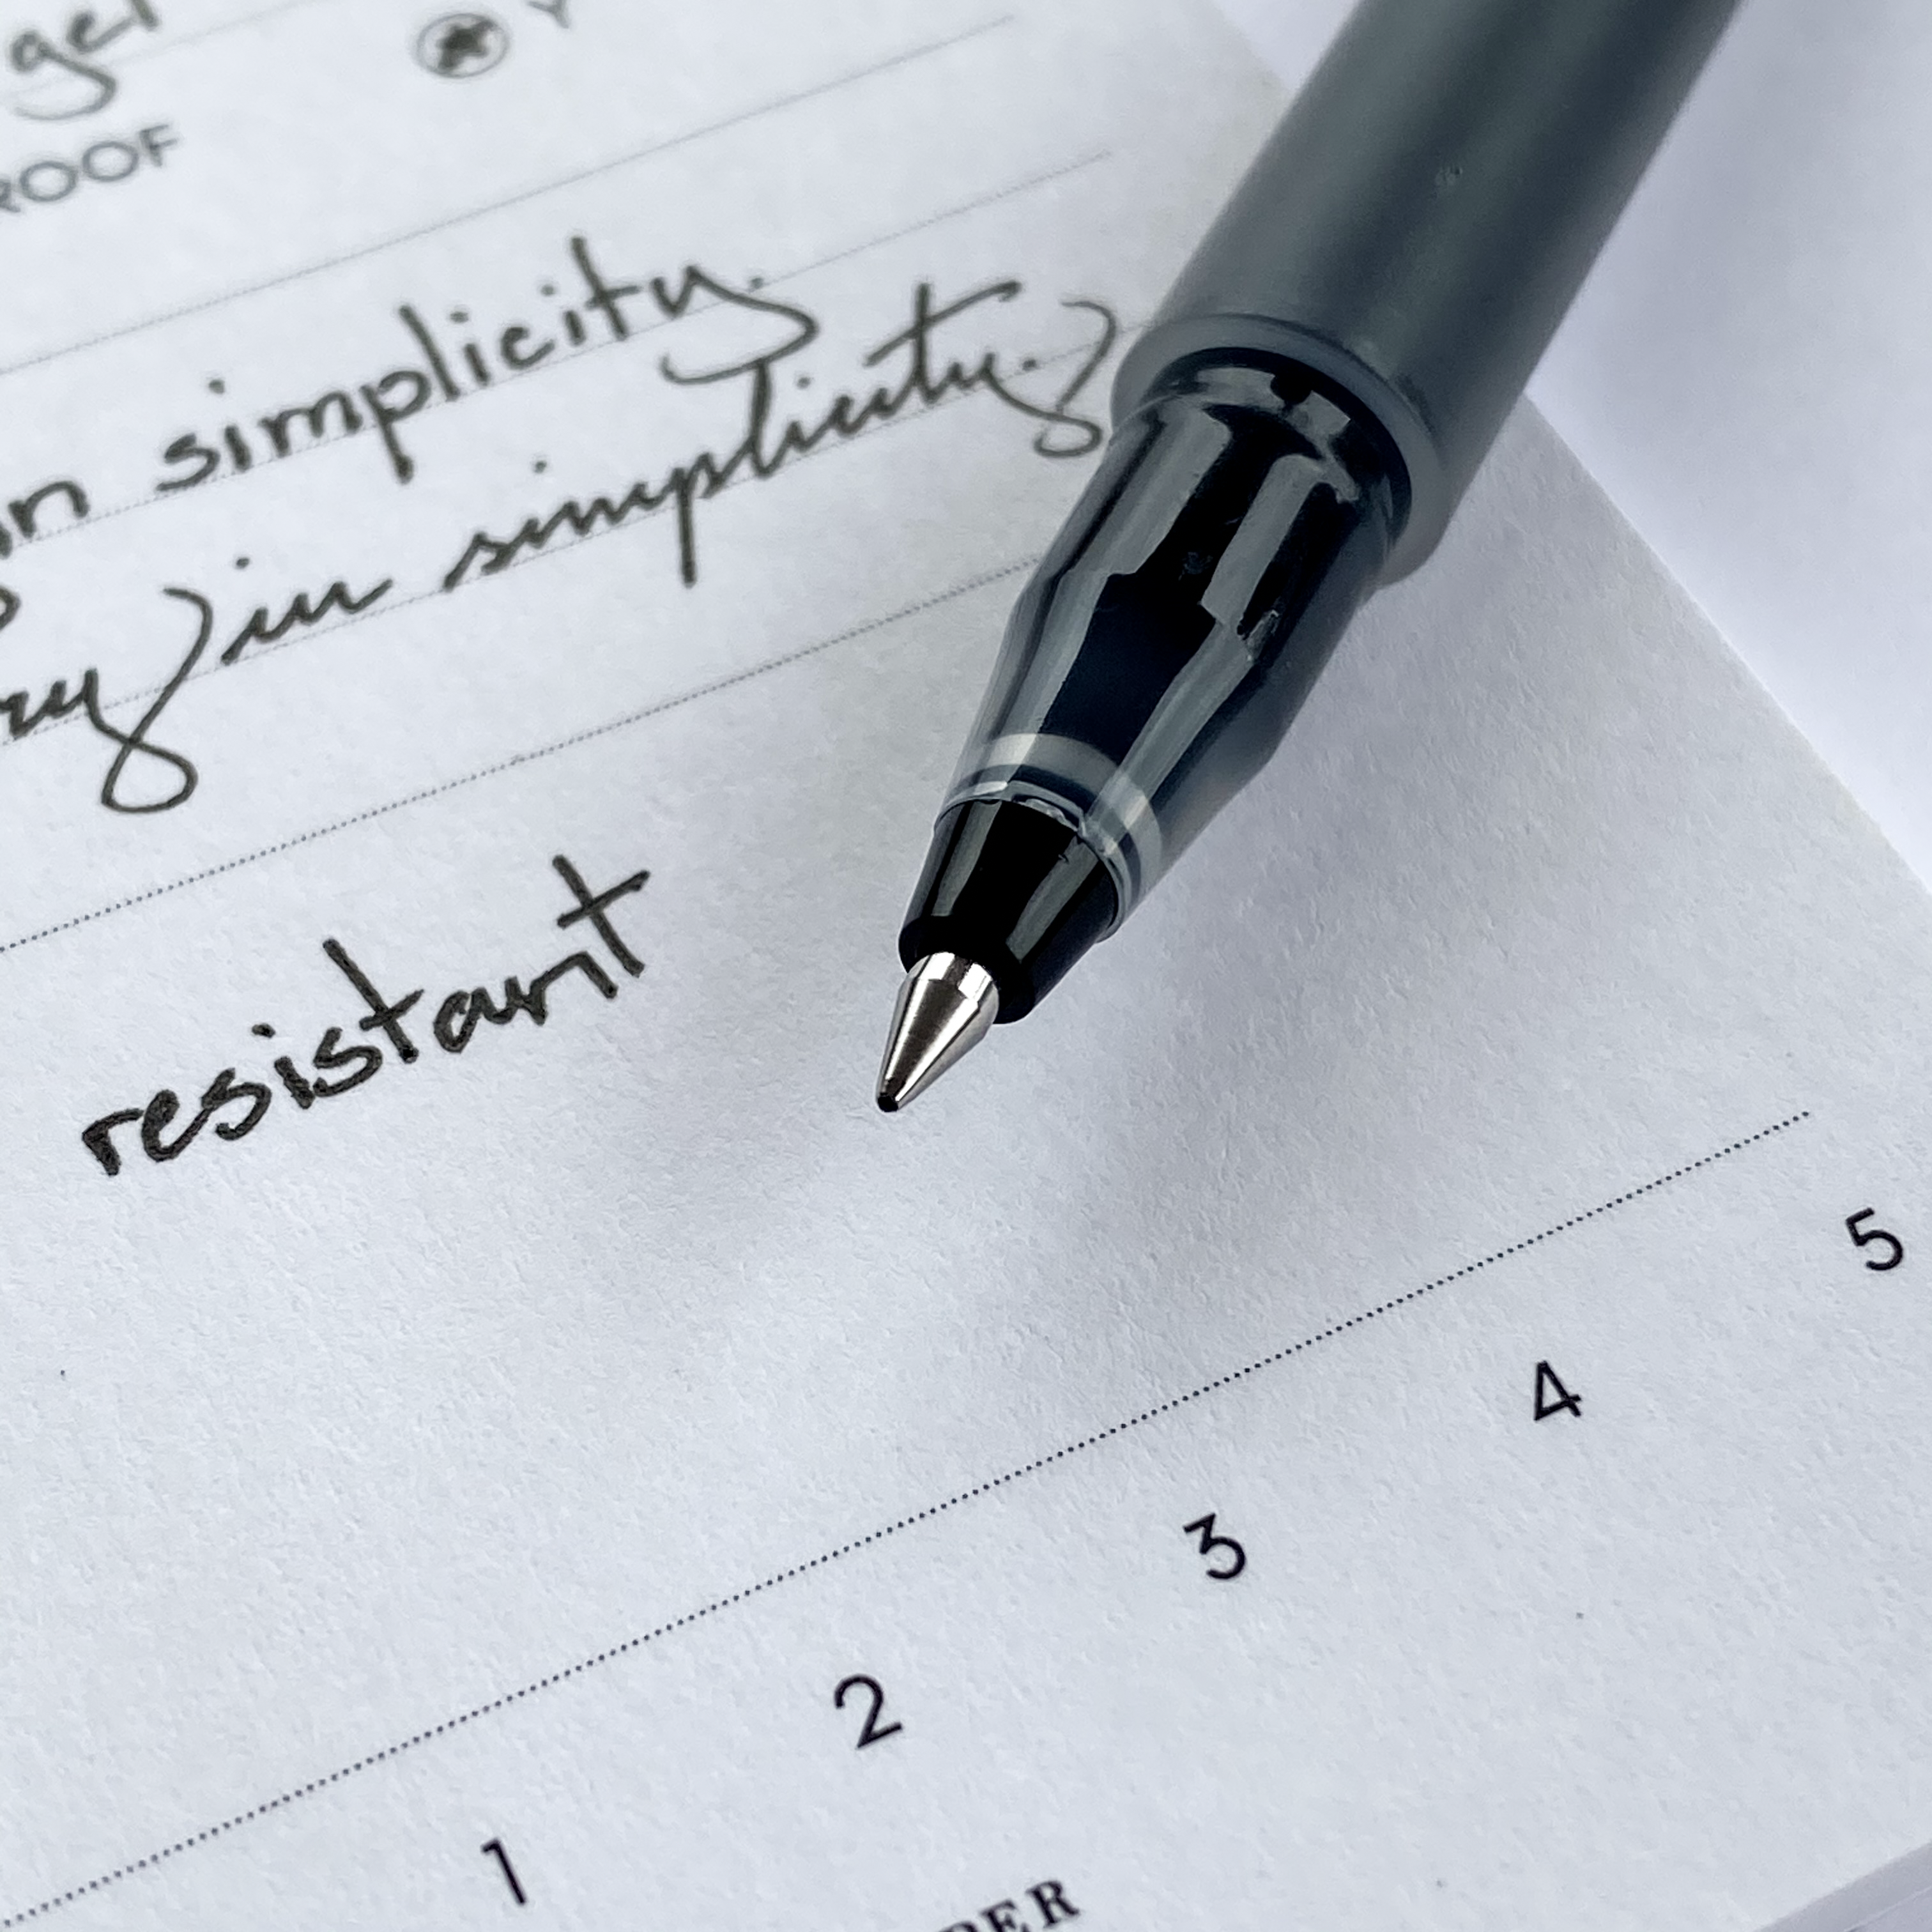 gel Y
ROOF
in simplicity.
ry in simplicity.
resistant
1 2 3 4 5
DER